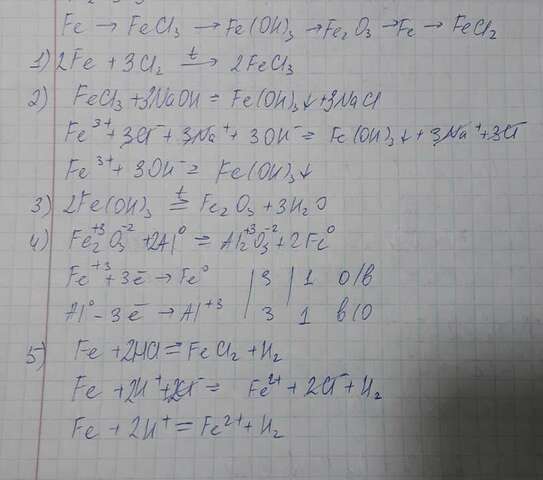 Fe → FeCl₃ → Fe(OH)₃ → Fe₂O₃ → Fe → FeCl₂
1) 2Fe + 3Cl₂ →ᵗ 2FeCl₃
2) FeCl₃ + 3NaOH = Fe(OH)₃↓ + 3NaCl
Fe³⁺ + 3Cl⁻ + 3Na⁺ + 3OH⁻ = Fe(OH)₃↓ + 3Na⁺ + 3Cl⁻
Fe³⁺ + 3OH⁻ = Fe(OH)₃↓
3) 2Fe(OH)₃ =ᵗ Fe₂O₃ + 3H₂O
4) Fe₂⁺³O₃⁻² + 2Al⁰ = Al₂⁺³O₃⁻² + 2Fe⁰
Fe⁺³ + 3ē → Fe⁰ | 3 | 1 о/в
Al⁰ - 3ē → Al⁺³ | 3 | 1 в/о
5) Fe + 2HCl = FeCl₂ + H₂
Fe + 2H⁺ + 2Cl⁻ = Fe²⁺ + 2Cl⁻ + H₂
Fe + 2H⁺ = Fe²⁺ + H₂